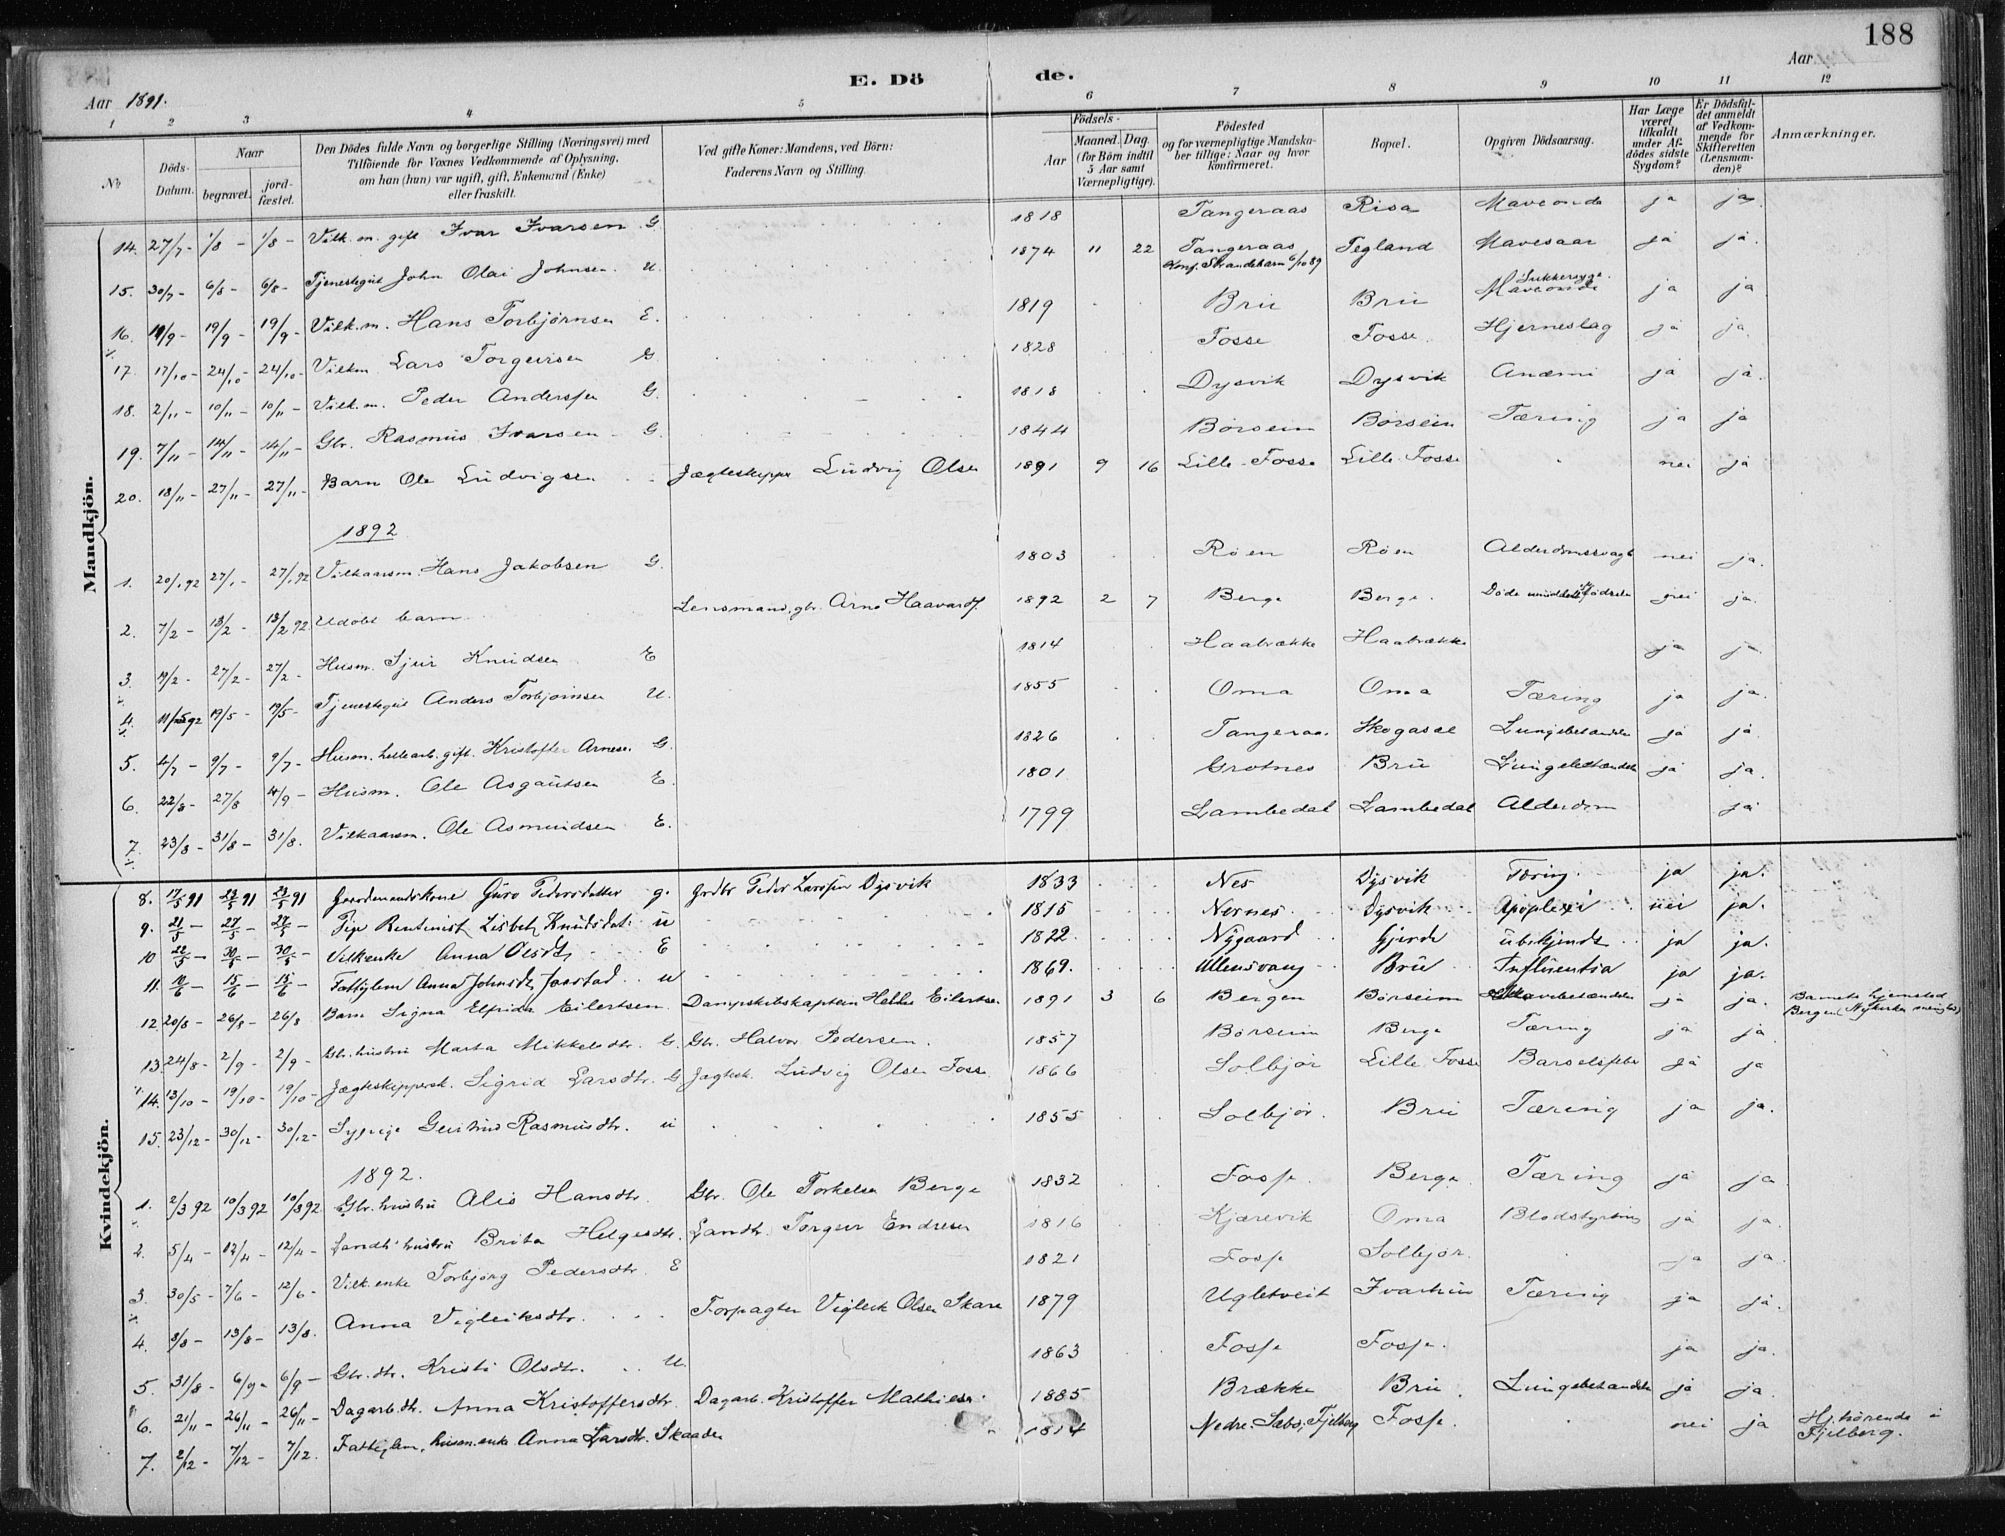 188
E. Dö de.
Aar 1891. Aar
1 2 3 4 5 6 7 8 9 10 11 12
No Döds-Datum. Naar begravet. jord-fæstet. Den Dödes fulde Navn og borgerlige Stilling (Næringsvei) med Tilföiende for Voxnes Vedkommende af Oplysning, om han (hun) var ugift, gift, Enkemand (Enke) eller fraskilt. Ved gifte Koner: Mandens, ved Börn: Faderens Navn og Stilling. Födsels- Aar Maaned. Dag. (for Börn indtil 5 Aar samt Værnepligtige). Födested og for værnepligtige Mandskaber tillige: Naar og hvor konfirmeret. Bopæl. Opgiven Dödsaarsag. Har Læge været tilkaldt under Afdödes sidste Sygdom? Er Dödsfaldet anmeldt af Vedkommende for Skifteretten (Lensmanden)? Anmærkninger.
Mandkjön.
14. 27/7 - 1/8 - 1/8 - Vilk.m. gift Ivar Ivarsen G 1818 Tangeraas Risa Maveonde ja ja
15. 30/7 - 6/8 - 6/8 - Tjenestegut John Olai Johnsen. U. 1874 11 22 Tangeraas, Konf. Strandebarm 6/10 89 Tegland Mavesaar ja ja.
16. 19/9 - 19/9 - Vilk.m. Hans Torbjørnsen E. 1819 Brü Brü Sukkersyge. Maveonde ja ja
17. 17/10 - 24/10 - 24/10 - Vilkm. Lars Torgeirsen G. 1828 Fosse Fosse. Hjerneslag ja ja.
18. 2/11 - 10/11 - 10/11 - Vilk.m. Peder Anderssen G. 1818 Dysvik Dysvik Anæmi ja ja.
19. 7/11 - 14/11 - 14/11 - Gbr. Rasmus Ivarsen - G. 1844 Børseim Børseim Tæring ja ja
20. 18/11 - 27/11 - 27/11 - Barn Ole Ludvigsen Jægteskipper Ludvig Olsen 1891 9 16 Lille-Fosse Lille Fosse nei ja
1892
1. 20/1 92 27/1 - 27/1 92 Vilkaarsm. Hans Jakobsen G. 1803 Røen Røen Alderdomssvagh nei ja.
2. 7/2 - 13/2 - 13/2 92 Udøbt barn Lensmand, gbr. Arne Haavards. 1892 2 7 Berge Berge. Døde umiddelb. fødselen nei ja.
3. 19/2 - 27/2 - 27/2 - Husm. Sjur Knudsen E 1814 Haabrække Haabrække ja ja
4. 11/5 92 19/5 - 19/5 - Tjenestegut Anders Torbjørnsen U. 1855 Oma Oma Tæring ja ja.
5. 4/7 - 9/7 - 9/7 - Husm. gift. Kristoffer Arnesen G. 1826 Tangeraas Skogasæl Lungebetændelse ja ja.
6. 22/8 - 27/8 4/9 - Husm. Ole Asgautsen E. 1801 Grotnes Brü Lungebetændelse ja ja.
7. 23/8 - 31/8 - 31/8. Vilkaarsm. Ole Asmundsen E. 1799 Lambedal Lambedal Alderdom ja
Kvindekjön.
8. 17/5 91 23/5 91 23/5 91 Gaardmandskone Guro Pedersdatter g. Grdbr Peder Larssen Dysvik 1833 Nes Dysvik Tæring ja ja.
9. 21/5 - 27/5 - 27/5 - Pige Rentenist Lisbet Knudsdat. u 1815 Nernes Dysvik Apoplexi nei ja.
10 22/5 - 30/5 - 30/5 - Vilkenke Anna Olsdt E 1822 Nygaard Gjerde übekjendt ja ja.
11. 10/6 - 15/6 - 15/6 - Fattiglem Anna Johnsdt. u 1869. Ullensvang Brü Influentsa ja ja.
12. 20/8 - 26/8 - 26/8 Barn Signa Elfrida Eilertsen. Dampskibskaptein Eilertsen 1891 3 6 Bergen Børseim ja ja. Barnets hjemsted Bergen (Nykirkes menighed)
13 24/8 - 2/9 - 2/9 - Gbr. hustru Marta Mikkelsdtr. G. Gbr. Halvor Pedersen. 1857 Børseim Berge Tæring ja ja
14. 13/10 - 19/10 - 19/10 - Jægteskippersk. Sigrid Larsdtr. G Jægtsk. Ludvig Olsen Fosse 1866 Solbjør Lille Fosse Barselfeber ja ja
15. 23/12 - 30/12 - 30/12 - Sypige Gurtrud Rasmusdtr. u 1855 Solbjør. Brü Tæring ja ja.
1892.
1. 2/3 92 10/3 92 10/3 92 Gbr. hustru Alis Hansdtr. Gbr. Ole Torkelsen Berge 1832 Fosse. Berge Tæring ja ja
2. 5/4 - 12/4 - 12/4 - Landh. hustru Brita Helgesdtr. Landh. Torgeir Endresen 1816 Kjærevik Oma Blodstyrtning ja ja.
3. 30/5 - 7/6 - 12/6 - Vilk. enke Torbjørg Pedersdtr. E 1821 Fosse Solbjør. ja ja.
4. 8/8 - 13/8 - 13/8. Anna Vigleiksdtr. Forpagter Vigleik Olsen Skare 1879 Ugletveit Tæring ja ja.
5. 31/8 - 6/9 - 6/9 - Gbr. dtr. Kristi Olsdtr. U. 1863 Fosse Fosse. ja ja.
6. 21/11 - 26/11 - 26/11 - Dagarb. dtr. Anna Kristoffersdtr. Dagarb. Kristoffer Mathiesen 1885 Brække Brü. Lungebetændelse ja ja.
7. 2/12 - 7/12 - 7/12. Fattiglem, husm. enke Anna Larsdtr. Skaaden 1814 Nedre-Sæbø, Fjelberg Fosse. nei ja Hj. hørende i Fjelberg.